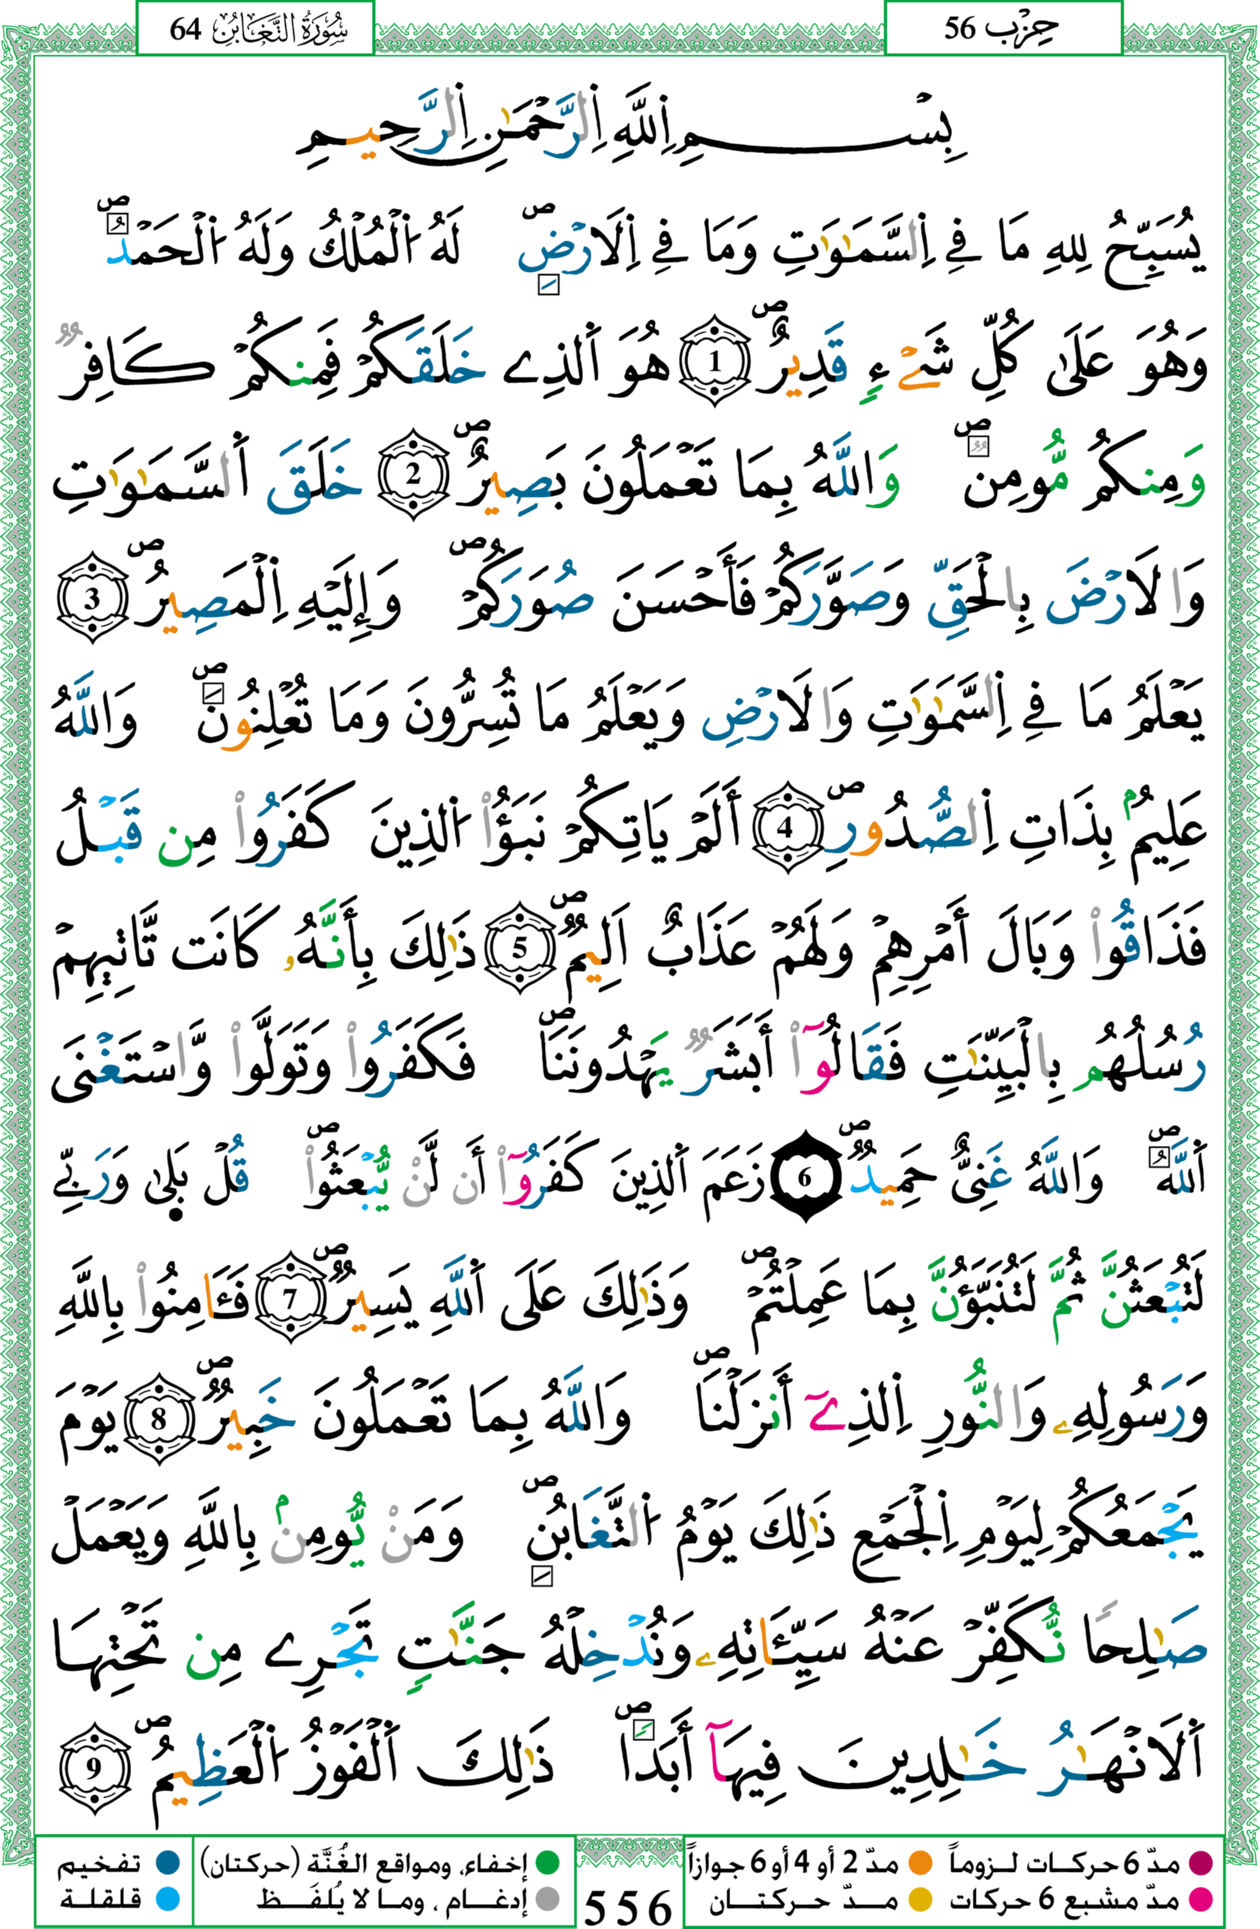 سُورَةُ التَّغَابُنِ 64
حِزْب 56
بِسْمِ اِللَّهِ اِلرَّحْمَٰنِ اِلرَّحِيمِ
يُسَبِّحُ لِلهِ مَا فِے اِلسَّمَٰوَٰتِ وَمَا فِے اِلَارْضِۖ لَهُ اُلْمُلْكُ وَلَهُ اُلْحَمْدُۖ
وَهُوَ عَلَىٰ كُلِّ شَےْءٖ قَدِيرٌۖ 1 هُوَ اَلذِے خَلَقَكُمْ فَمِنكُمْ كَافِرٞ
وَمِنكُم مُّومِنٞۖ وَاللَّهُ بِمَا تَعْمَلُونَ بَصِيرٌۖ 2 خَلَقَ اَلسَّمَٰوَٰتِ
وَالَارْضَ بِالْحَقِّ وَصَوَّرَكُمْ فَأَحْسَنَ صُوَرَكُمْۖ وَإِلَيْهِ اِلْمَصِيرُۖ 3
يَعْلَمُ مَا فِے اِلسَّمَٰوَٰتِ وَالَارْضِ وَيَعْلَمُ مَا تُسِرُّونَ وَمَا تُعْلِنُونَۖ وَاللَّهُ
عَلِيمُۢ بِذَاتِ اِلصُّدُورِۖ 4 أَلَمْ يَاتِكُمْ نَبَؤُاْ اُلذِينَ كَفَرُواْ مِن قَبْلُ
فَذَاقُواْ وَبَالَ أَمْرِهِمْ وَلَهُمْ عَذَابٌ اَلِيمٞۖ 5 ذَٰلِكَ بِأَنَّهُۥ كَانَت تَّاتِيهِمْ
رُسُلُهُم بِالْبَيِّنَٰتِ فَقَالُوٓاْ أَبَشَرٞ يَهْدُونَنَاۖ فَكَفَرُواْ وَتَوَلَّواْ وَّاسْتَغْنَى
اَللَّهُۖ وَاللَّهُ غَنِيٌّ حَمِيدٞۖ 6 زَعَمَ اَلذِينَ كَفَرُوٓاْ أَن لَّنْ يُّبْعَثُواْۖ قُلْ بَلَىٰ وَرَبِّے
لَتُبْعَثُنَّ ثُمَّ لَتُنَبَّؤُنَّ بِمَا عَمِلْتُمْۖ وَذَٰلِكَ عَلَى اَللَّهِ يَسِيرٞۖ 7 فَـَٔامِنُواْ بِاللَّهِ
وَرَسُولِهِۦ وَالنُّورِ اِلذِےٓ أَنزَلْنَاۖ وَاللَّهُ بِمَا تَعْمَلُونَ خَبِيرٞۖ 8 يَوْمَ
يَجْمَعُكُمْ لِيَوْمِ اِلْجَمْعِ ذَٰلِكَ يَوْمُ اُلتَّغَابُنِۖ وَمَنْ يُّومِنۢ بِاللَّهِ وَيَعْمَلْ
صَٰلِحاٗ نُّكَفِّرْ عَنْهُ سَيِّـَٔاتِهِۦ وَنُدْخِلْهُ جَنَّٰتٖ تَجْرِے مِن تَحْتِهَا
اَلَانْهَٰرُ خَٰلِدِينَ فِيهَآ أَبَداٗۖ ذَٰلِكَ اَلْفَوْزُ اُلْعَظِيمُۖ 9
مدّ 6 حركات لزوماً مدّ 2 أو 4 أو 6 جوازاً إخفاء، ومواقع الغُنَّة (حركتان) تفخيم
مدّ مشبع 6 حركات مدّ حركتان إدغام ، وما لا يُلفَظ قلقلة
556